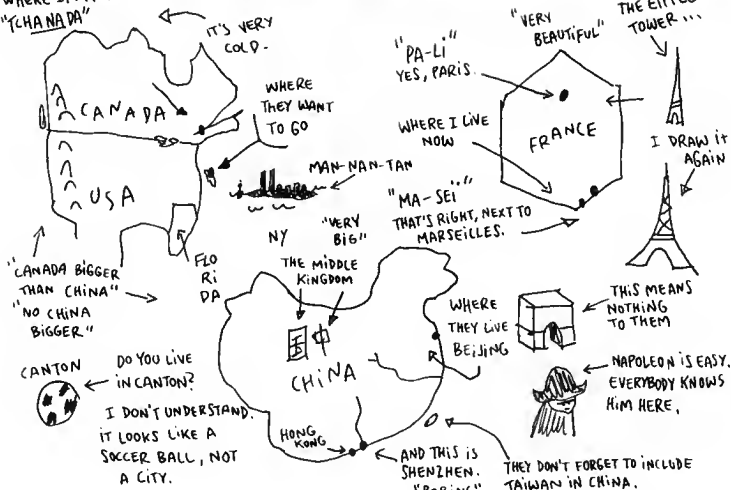 "TCHANADA"
IT'S VERY
COLD.
CANADA
WHERE
THEY WANT
TO GO
USA
MAN-NAN-TAN
NY
FLO
RI
DA
"CANADA BIGGER
THAN CHINA"
"NO CHINA
BIGGER"
"VERY
BEAUTIFUL"
TOWER...
"PA-LI"
YES, PARIS.
WHERE I LIVE
NOW
FRANCE
I DRAW IT
AGAIN
"MA-SEI"
THAT'S RIGHT, NEXT TO
MARSEILLES.
"VERY
BIG"
THE MIDDLE
KINGDOM
国中
CHINA
WHERE
THEY LIVE
BEIJING
THIS MEANS
NOTHING
TO THEM
NAPOLEON IS EASY.
EVERYBODY KNOWS
HIM HERE.
CANTON
DO YOU LIVE
IN CANTON?
I DON'T UNDERSTAND.
IT LOOKS LIKE A
SOCCER BALL, NOT
A CITY.
HONG
KONG
AND THIS IS
SHENZHEN.
THEY DON'T FORGET TO INCLUDE
TAIWAN IN CHINA.